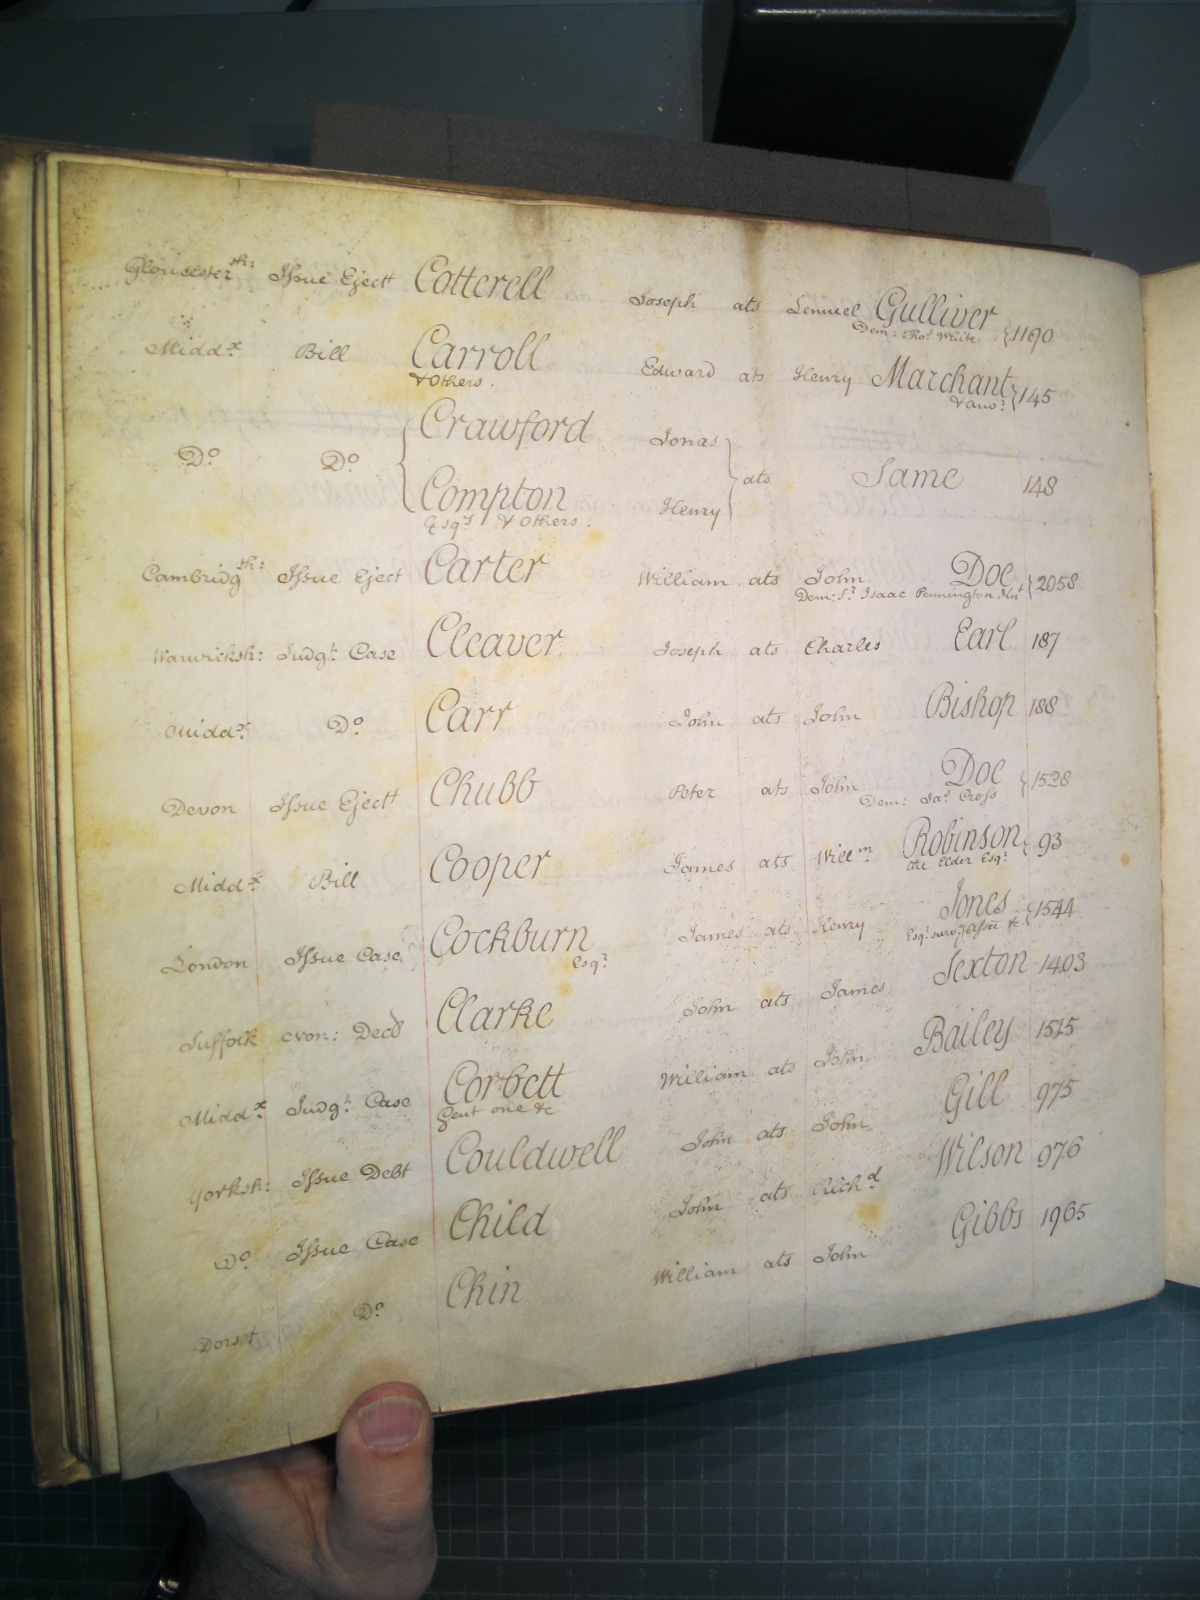 Gloucestersh: Issue Eject Cotterell Joseph ats Lemuel Gulliver 1190
Dem: Thos White
Middx Bill Carroll Edward ats Henry Marchant 145
& Others. & anor
Crawford Jonas
Do Do ats Same 148
Compton Henry
Esqrs & Others.
Cambridgsh: Issue Eject Carter William ats John Doe 2058
Dem: Sr Isaac Pennington Knt
Warwicksh: Judgt Case Cleaver Joseph ats Charles Earl 187
Middx Do Carr John ats John Bishop 188
Devon Issue Eject Chubb Peter ats John Doe 1528
Dem: Jas Cross
Middx Bill Cooper James ats Willm Robinson 93
the Elder Esqr
London Issue Case Cockburn James ats Henry Jones 1544
Esqr Esqr surv &c
Suffolk Decd Clarke John ats James Sexton 1403
Middx Judgt Case Corbett William ats John Bailey 1515
Gent one &c
Yorksh: Issue Debt Couldwell John ats John Gill 975
Do Issue Case Child John ats Richd Wilson 976
Dorset Do Chin William ats John Gibbs 1965